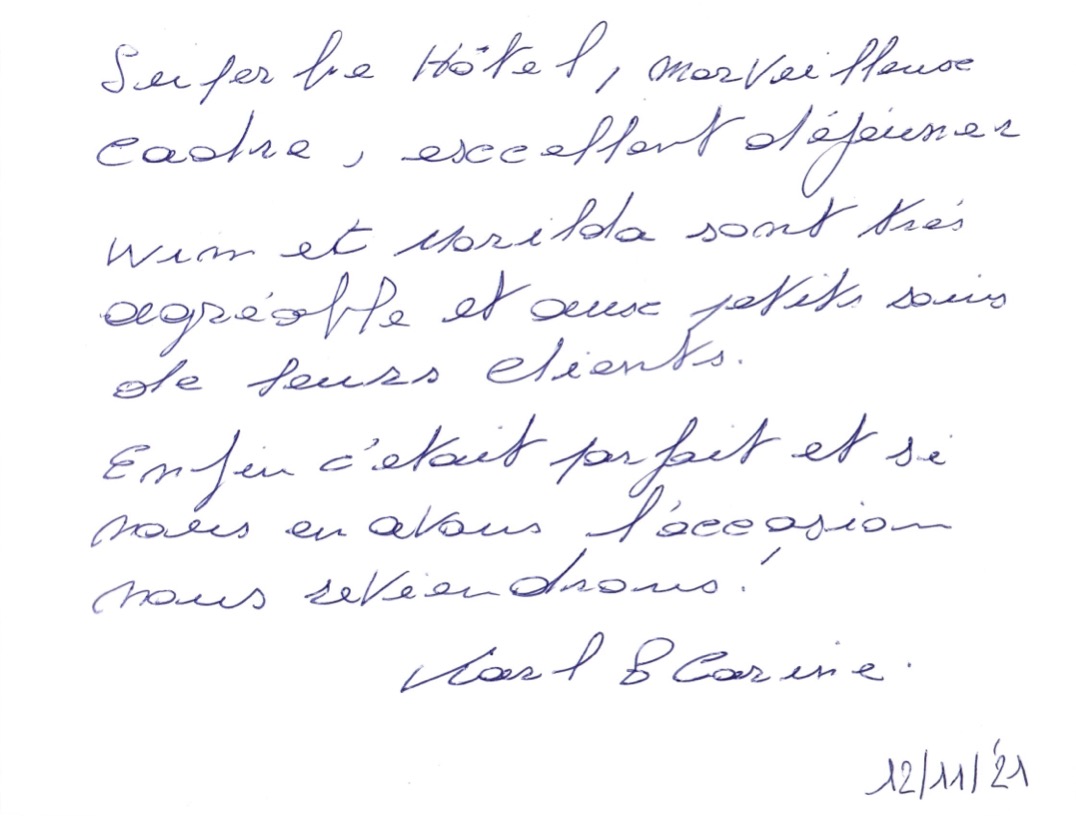 Superbe Hôtel, marveilleuse
cadre, excellent déjeuner
Wim et Marilda sont très
agréable et aux petits soins
de leurs clients.
Enfin c'etait parfait et si
nous en avons l'occasion
nous reviendrons!
Karl & Carine.
12/11/'21